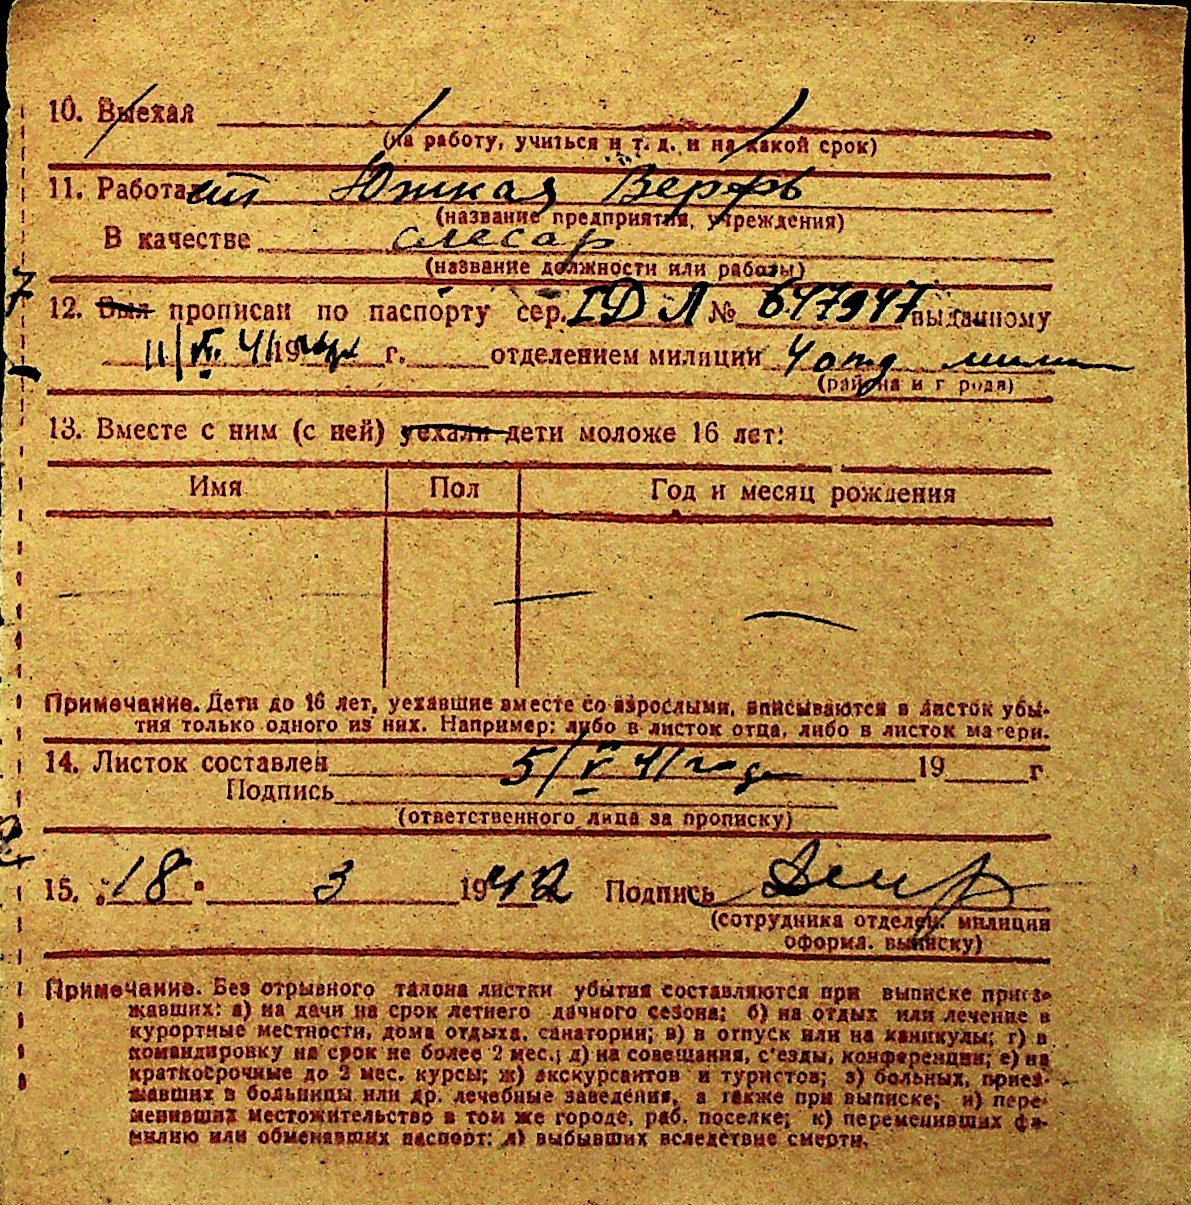 10. Выехал
(на работу, учиться и т. д. и на какой срок)
11. Работает Южная Верфь
(название предприятия, учреждения)
В качестве слесар
(название должности или работы)
12. Был прописан по паспорту сер. IДЛ № 647947 выданному
11/VI. 41 19 г. отделением милиции 4 отд мили
(района и города)
13. Вместе с ним (с ней) уехали дети моложе 16 лет:
Имя Пол Год и месяц рождения
Примечание. Дети до 16 лет, уехавшие вместе со взрослыми, вписываются в листок убы-
тия только одного из них. Например: либо в листок отца, либо в листок матери.
14. Листок составлен 5/V 41 года 19 г
Подпись
(ответственного лица за прописку)
15. "18" 3 1942 Подпись
(сотрудника отделен. милиции
оформл. выписку)
Примечание. Без отрывного талона листки убытия составляются при выписке приез-
жавших: а) на дачи на срок летнего дачного сезона; б) на отдых или лечение в
курортные местности, дома отдыха, санатории; в) в отпуск или на каникулы; г) в
командировку на срок не более 2 мес.; д) на совещания, с'езды, конференции; е) на
краткосрочные до 2 мес. курсы; ж) экскурсантов и туристов; з) больных, приез-
жавших в больницы или др. лечебные заведения, а также при выписке; и) пере-
менивших местожительство в том же городе, раб. поселке; к) переменивших фа-
милию или обменявших паспорт; л) выбывших вследствие смерти.